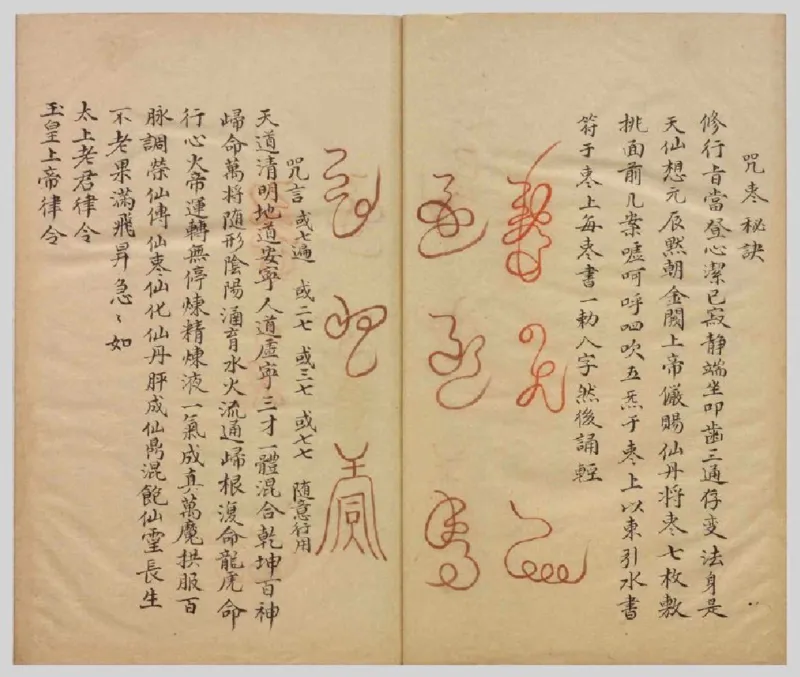 咒枣秘訣
修行旨當登心潔已寂静端坐叩齒三通存变法身是
天仙想元辰黙朝金闕上帝儀賜仙丹将枣七枚敷
桃面前几案嘘呵呼呬吹五炁于枣上以東引水書
符于枣上每枣書一勅八字然後誦輕
咒言 或七遍 或二七 或三七 或七七 随意行用
天道清明地道安寧人道虛寧三才一體混合乾坤百神
歸命萬将随形陰陽涵育水火流通歸根復命龍虎命
行心火帝運轉無停煉精煉液一氣成真萬魔拱服百
脉調榮仙傳仙枣仙化仙丹成仙鼎混飽仙靈長生
不老果滿飛昇急〻如
太上老君律令
玉皇上帝律令